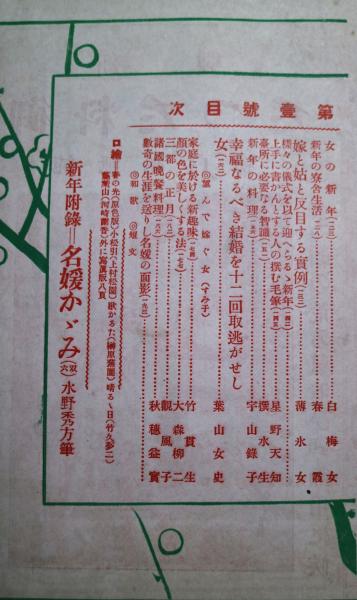 第壹號目次
女の新年………白梅女
新年の寮舍生活………春霞
嫁と姑と反目する實例………薄氷女
樣々の儀式を以て迎へらるゝ新年
上手に書かんとする人の撰む毛筆………星野天知
臺所に必要なる智識………撰水生
新年の料理………宇山錄子
幸福なるべき結婚を十二回取逃がせし女………葉山女史
◎望んで嫁ぐ女(すみ子)
家庭に於ける新趣味………竹貫生
顏の色を美しくする法………大森柳二
三都の正月………觀風子
諸國晩餐料理
數奇の生涯を送りし名媛の面影………秋穗益實
◎和歌 ◎短文
口繪 春の光(原色版)小松引(上村松園)歌かるた(榊原蕉園)晴るゝ日(竹久夢二)
葉山(河崎蘭香)外に寫眞版八頁
新年附錄―名媛かゞみ(双六)水野秀方筆